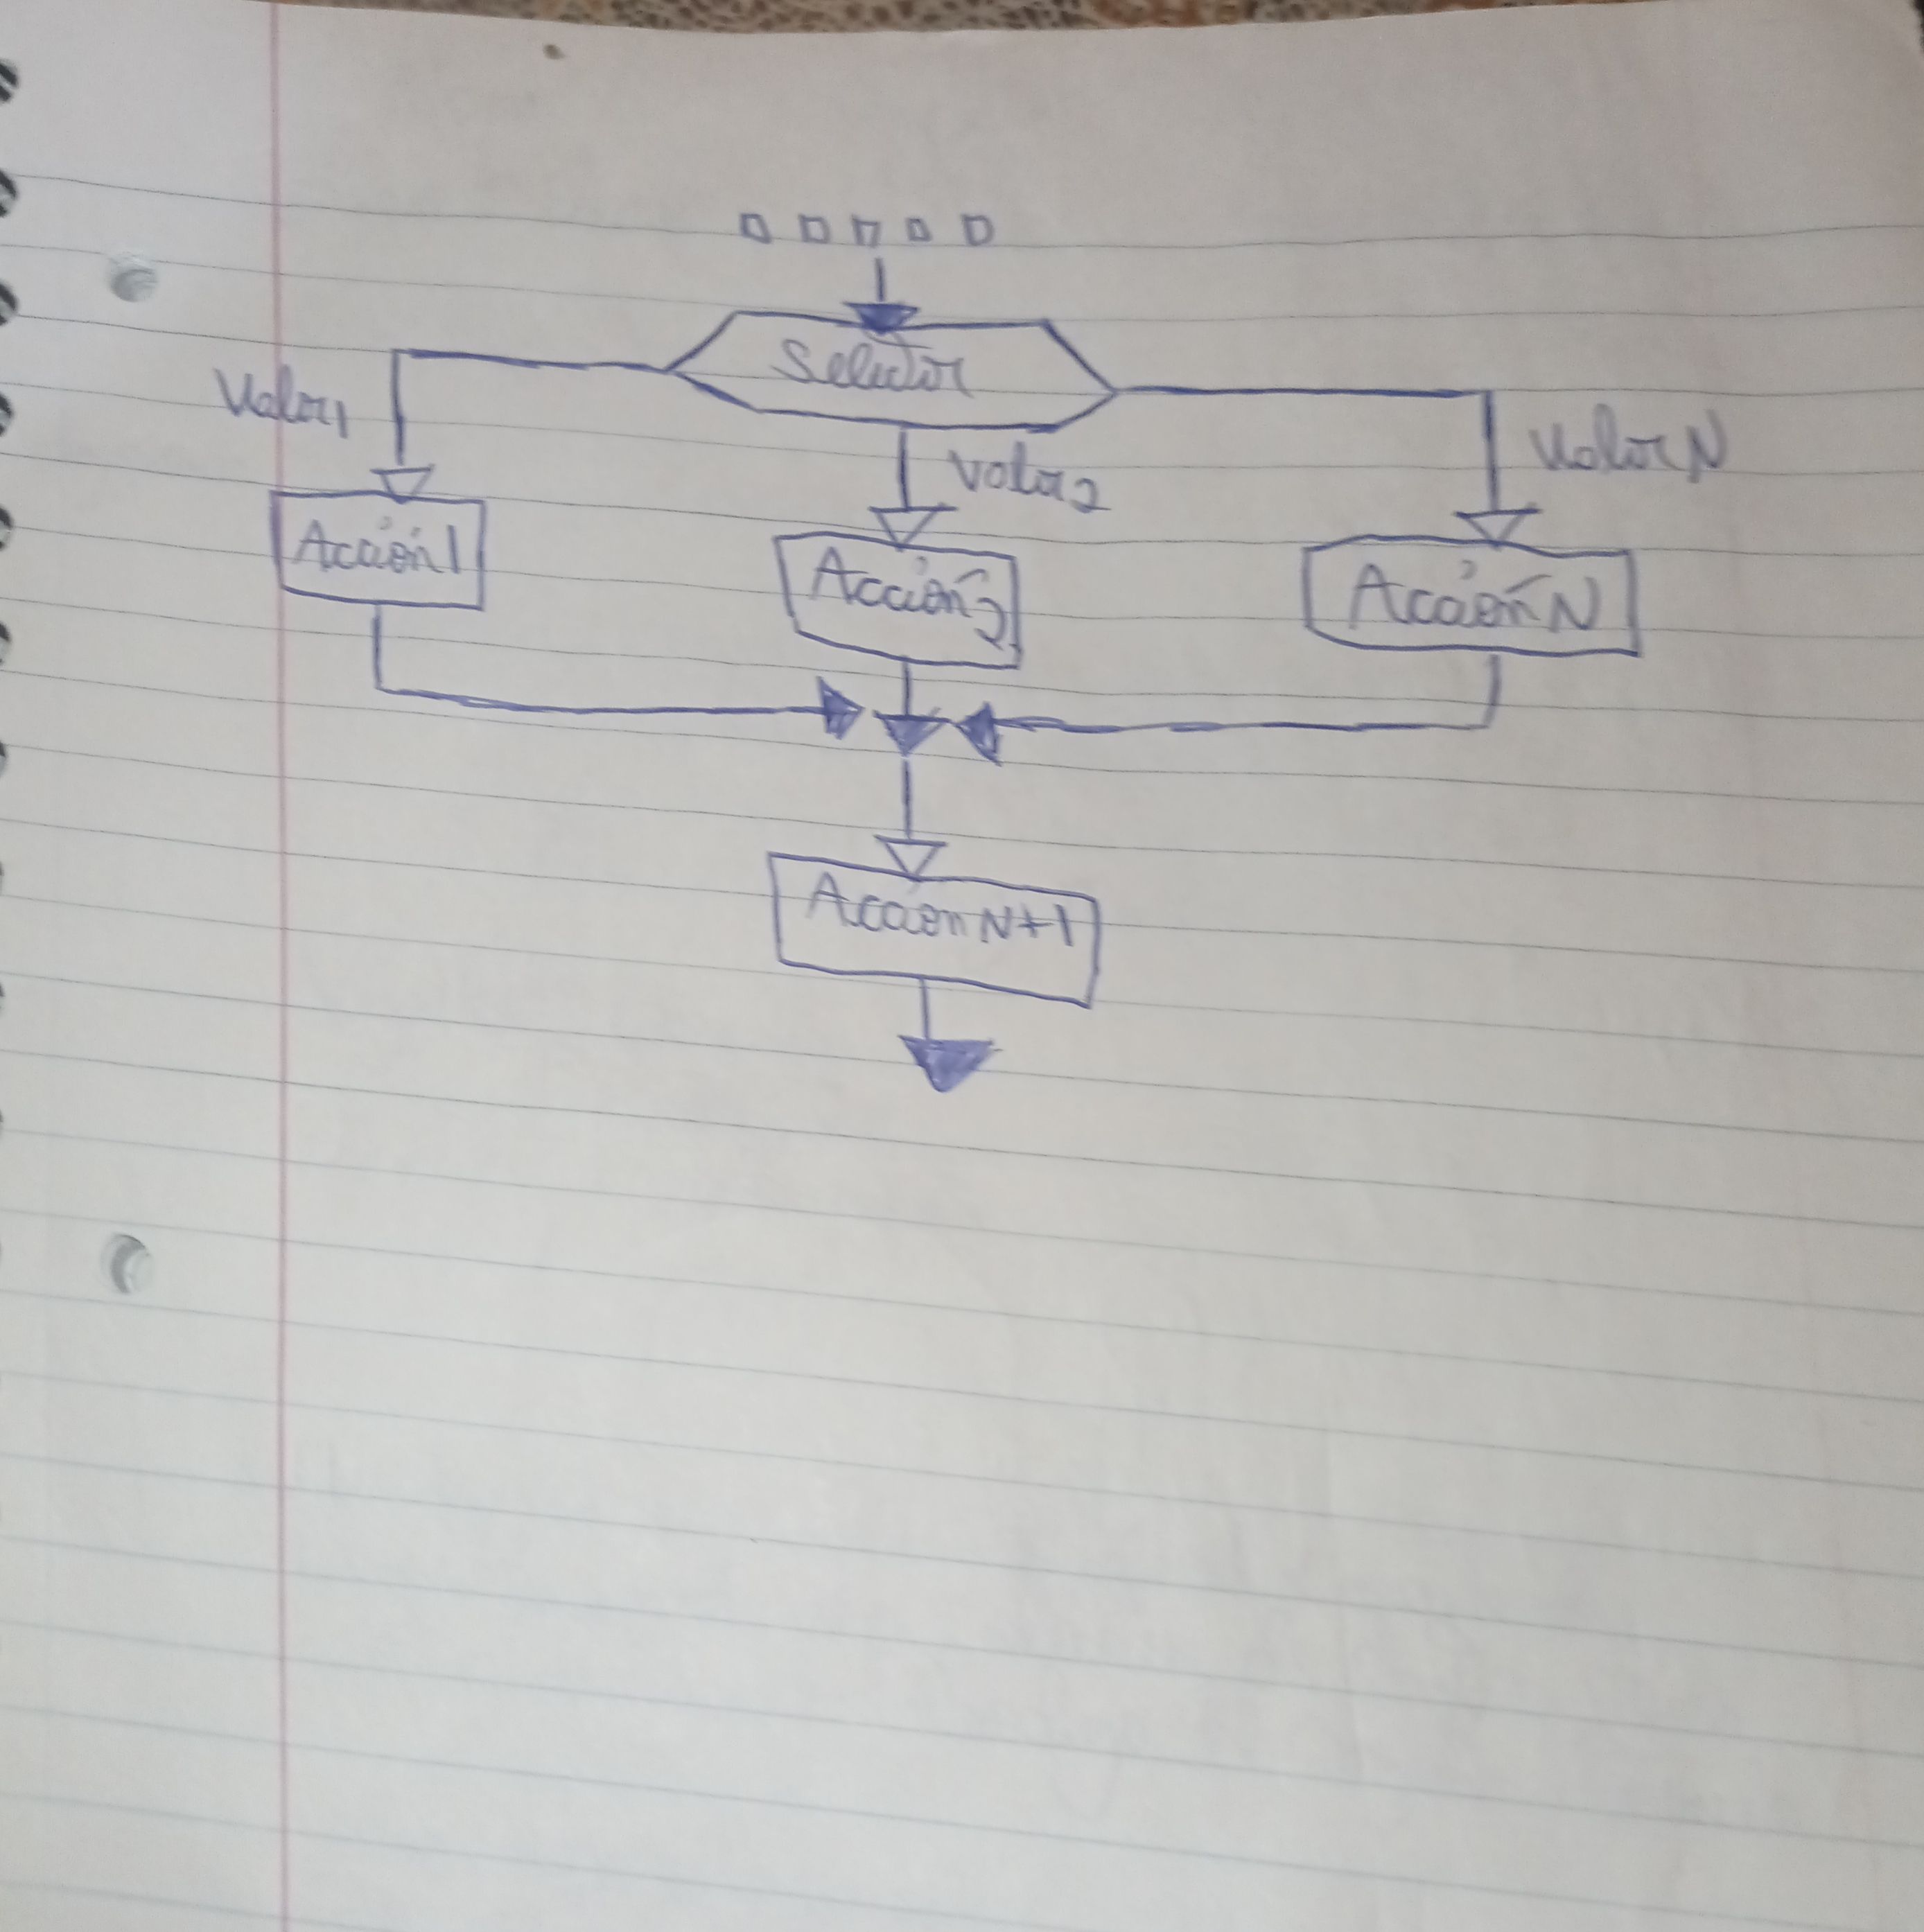 Selector
Valor1
Valor2
Valor N
Acción 1
Acción 2
Acción N
Acción N+1